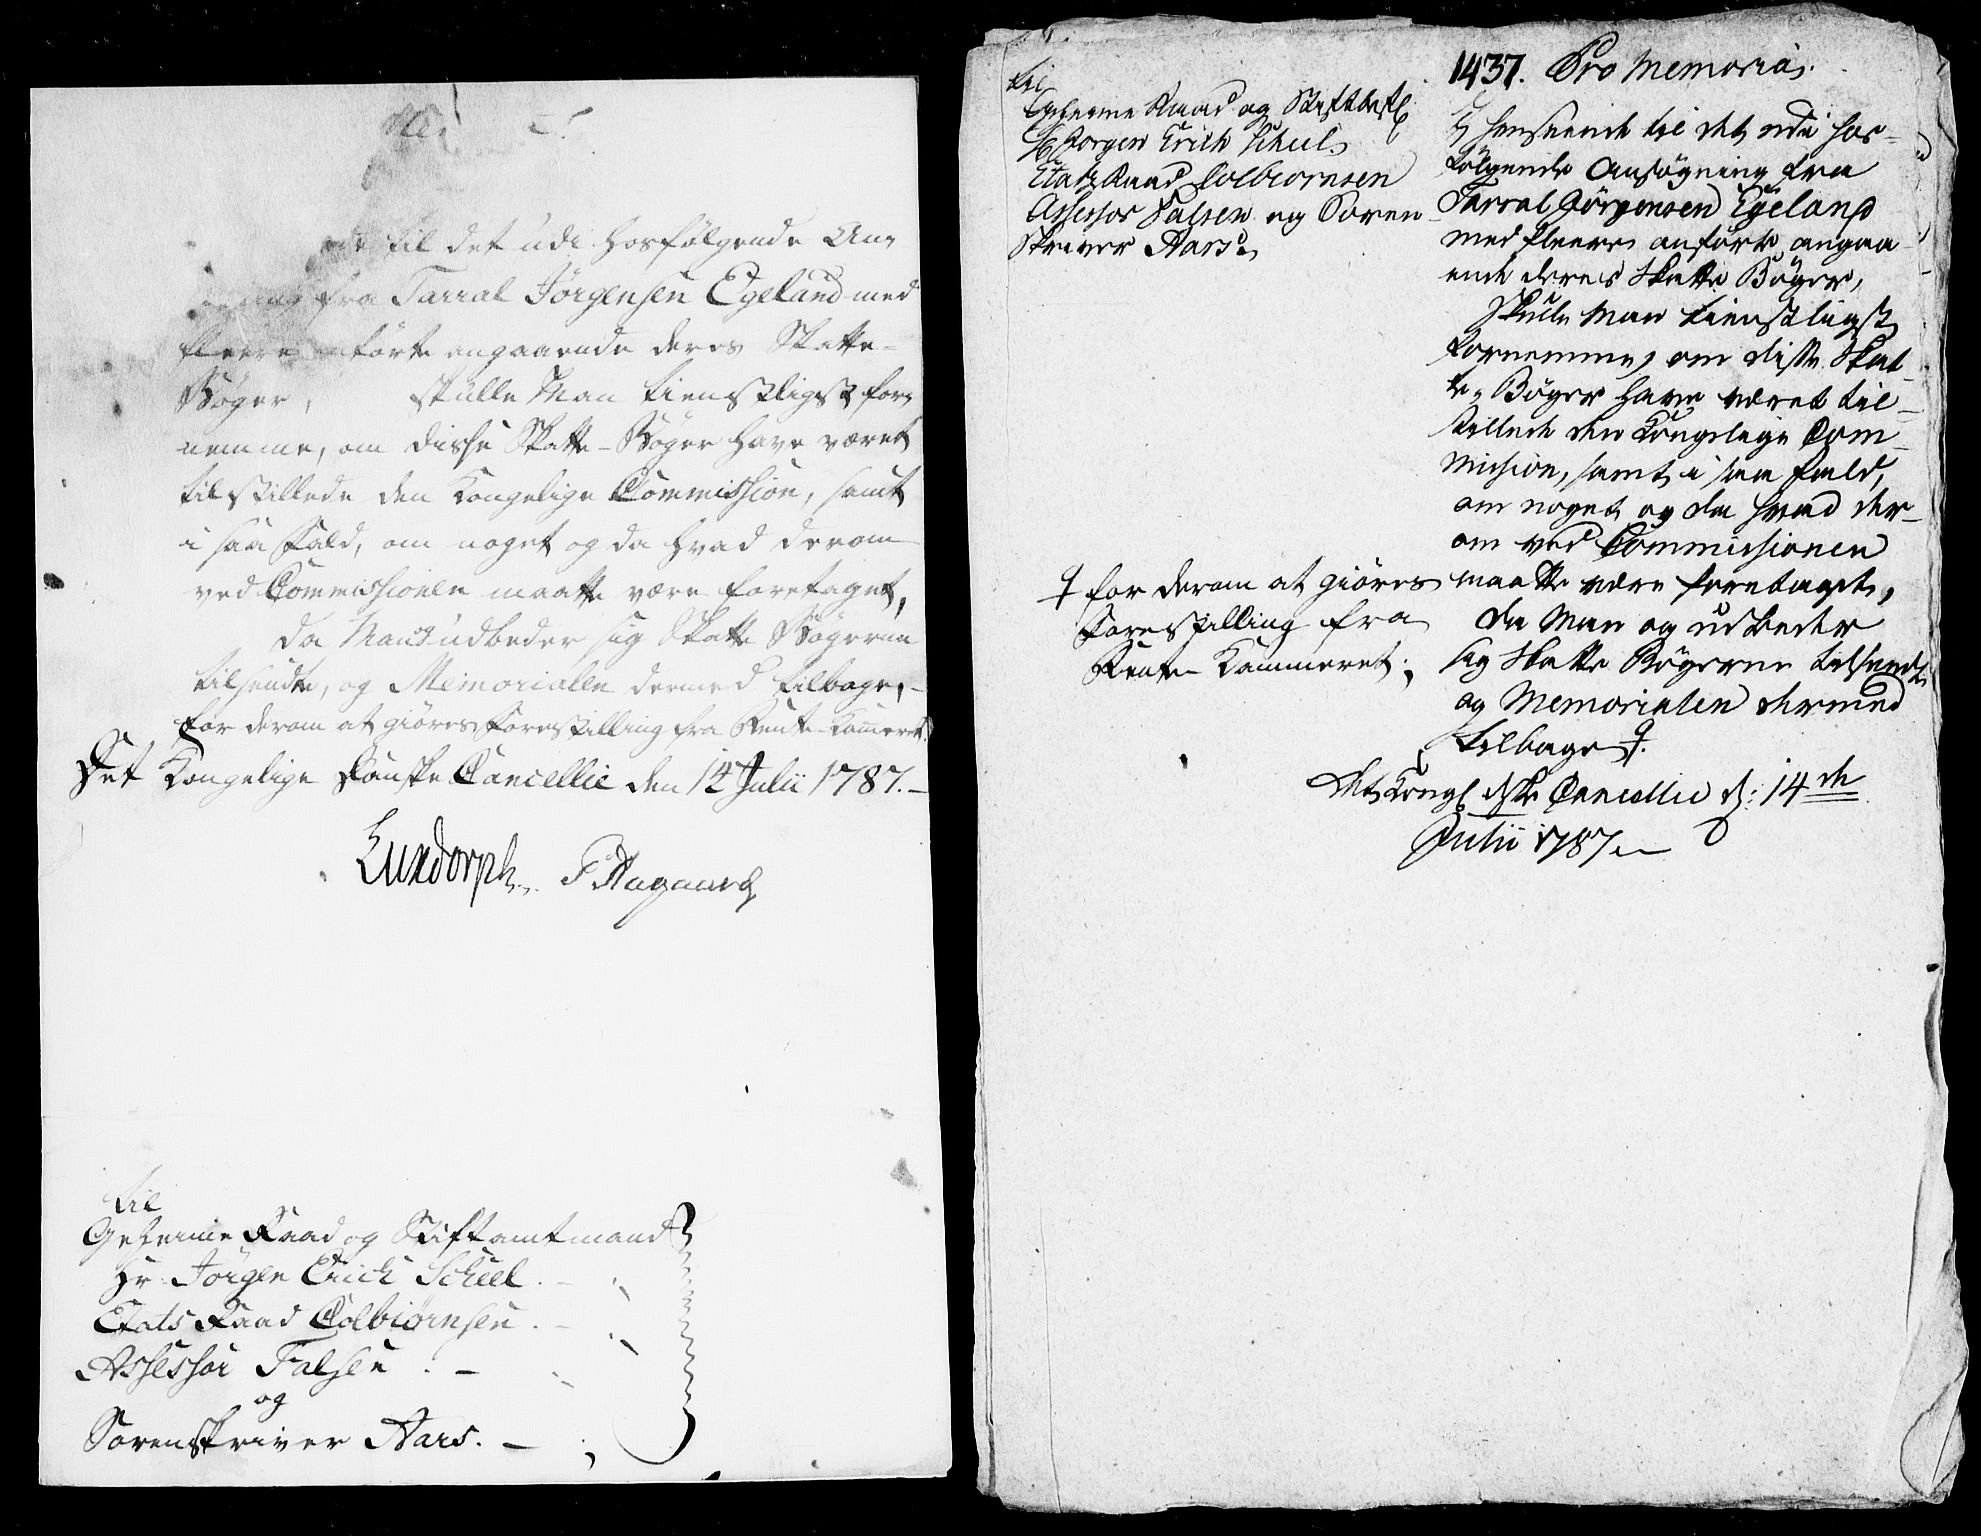 de til det udi hosfølgende An-
fra Tarral Jörgensen Egeland med
fleere anførte angaaende deres Skatte-
Bøger, skulle Man tienstligst for-
nemme, om disse Skatte-Bøger have været
tilstillede den Kongelige Commission, samt
i saa Fald, om noget og da hvad derom
ved Commissionen maatte være foretaget,
da Man udbeder sig Skatte Bøgerne
tilsendte, og Memorialen dermed tilbage,
for derom at giøres Forestilling fra Rente-Kam̄eret.
Det Kongelige Danske Cancellie den 14 Julii 1787.
Luxdorph. Aagaard
til
Geheime Raad og Stiftamtmand
Hr Jörgen Erich Scheel.
Etats Raad Colbiørnsen.
Assessor Falsen.
og
Sorenskriver Aars.
1437. Pro Memoria.
til
Geheime Raad og Stiftbefl
Hr Jorgen Erich Scheel
Etats Raad Colbiornsen
Assessor Falsen og Soren
Skriver Aars
I henseende til det udi hos-
følgende Ansøgning fra
Tarral Jörgensen Egeland
med fleere anførte angaa-
ende deres Skatte Bøger,
Skulle Man tienstligst
fornemme, om disse Skat-
te-Bøger have været til-
stillede den Kongelige Com-
mission, samt i saa fald,
om noget og da hvad der-
om ved Commissionen
maatte være foretaget,
da Man og udbeder
sig Skatte Bøgerne tilsendte
og Memorialen dermed
tilbage
for derom at giøres
Forestilling fra
Rente-Kammeret.
Det Kongl dske Cancellie d: 14de
Julii 1787